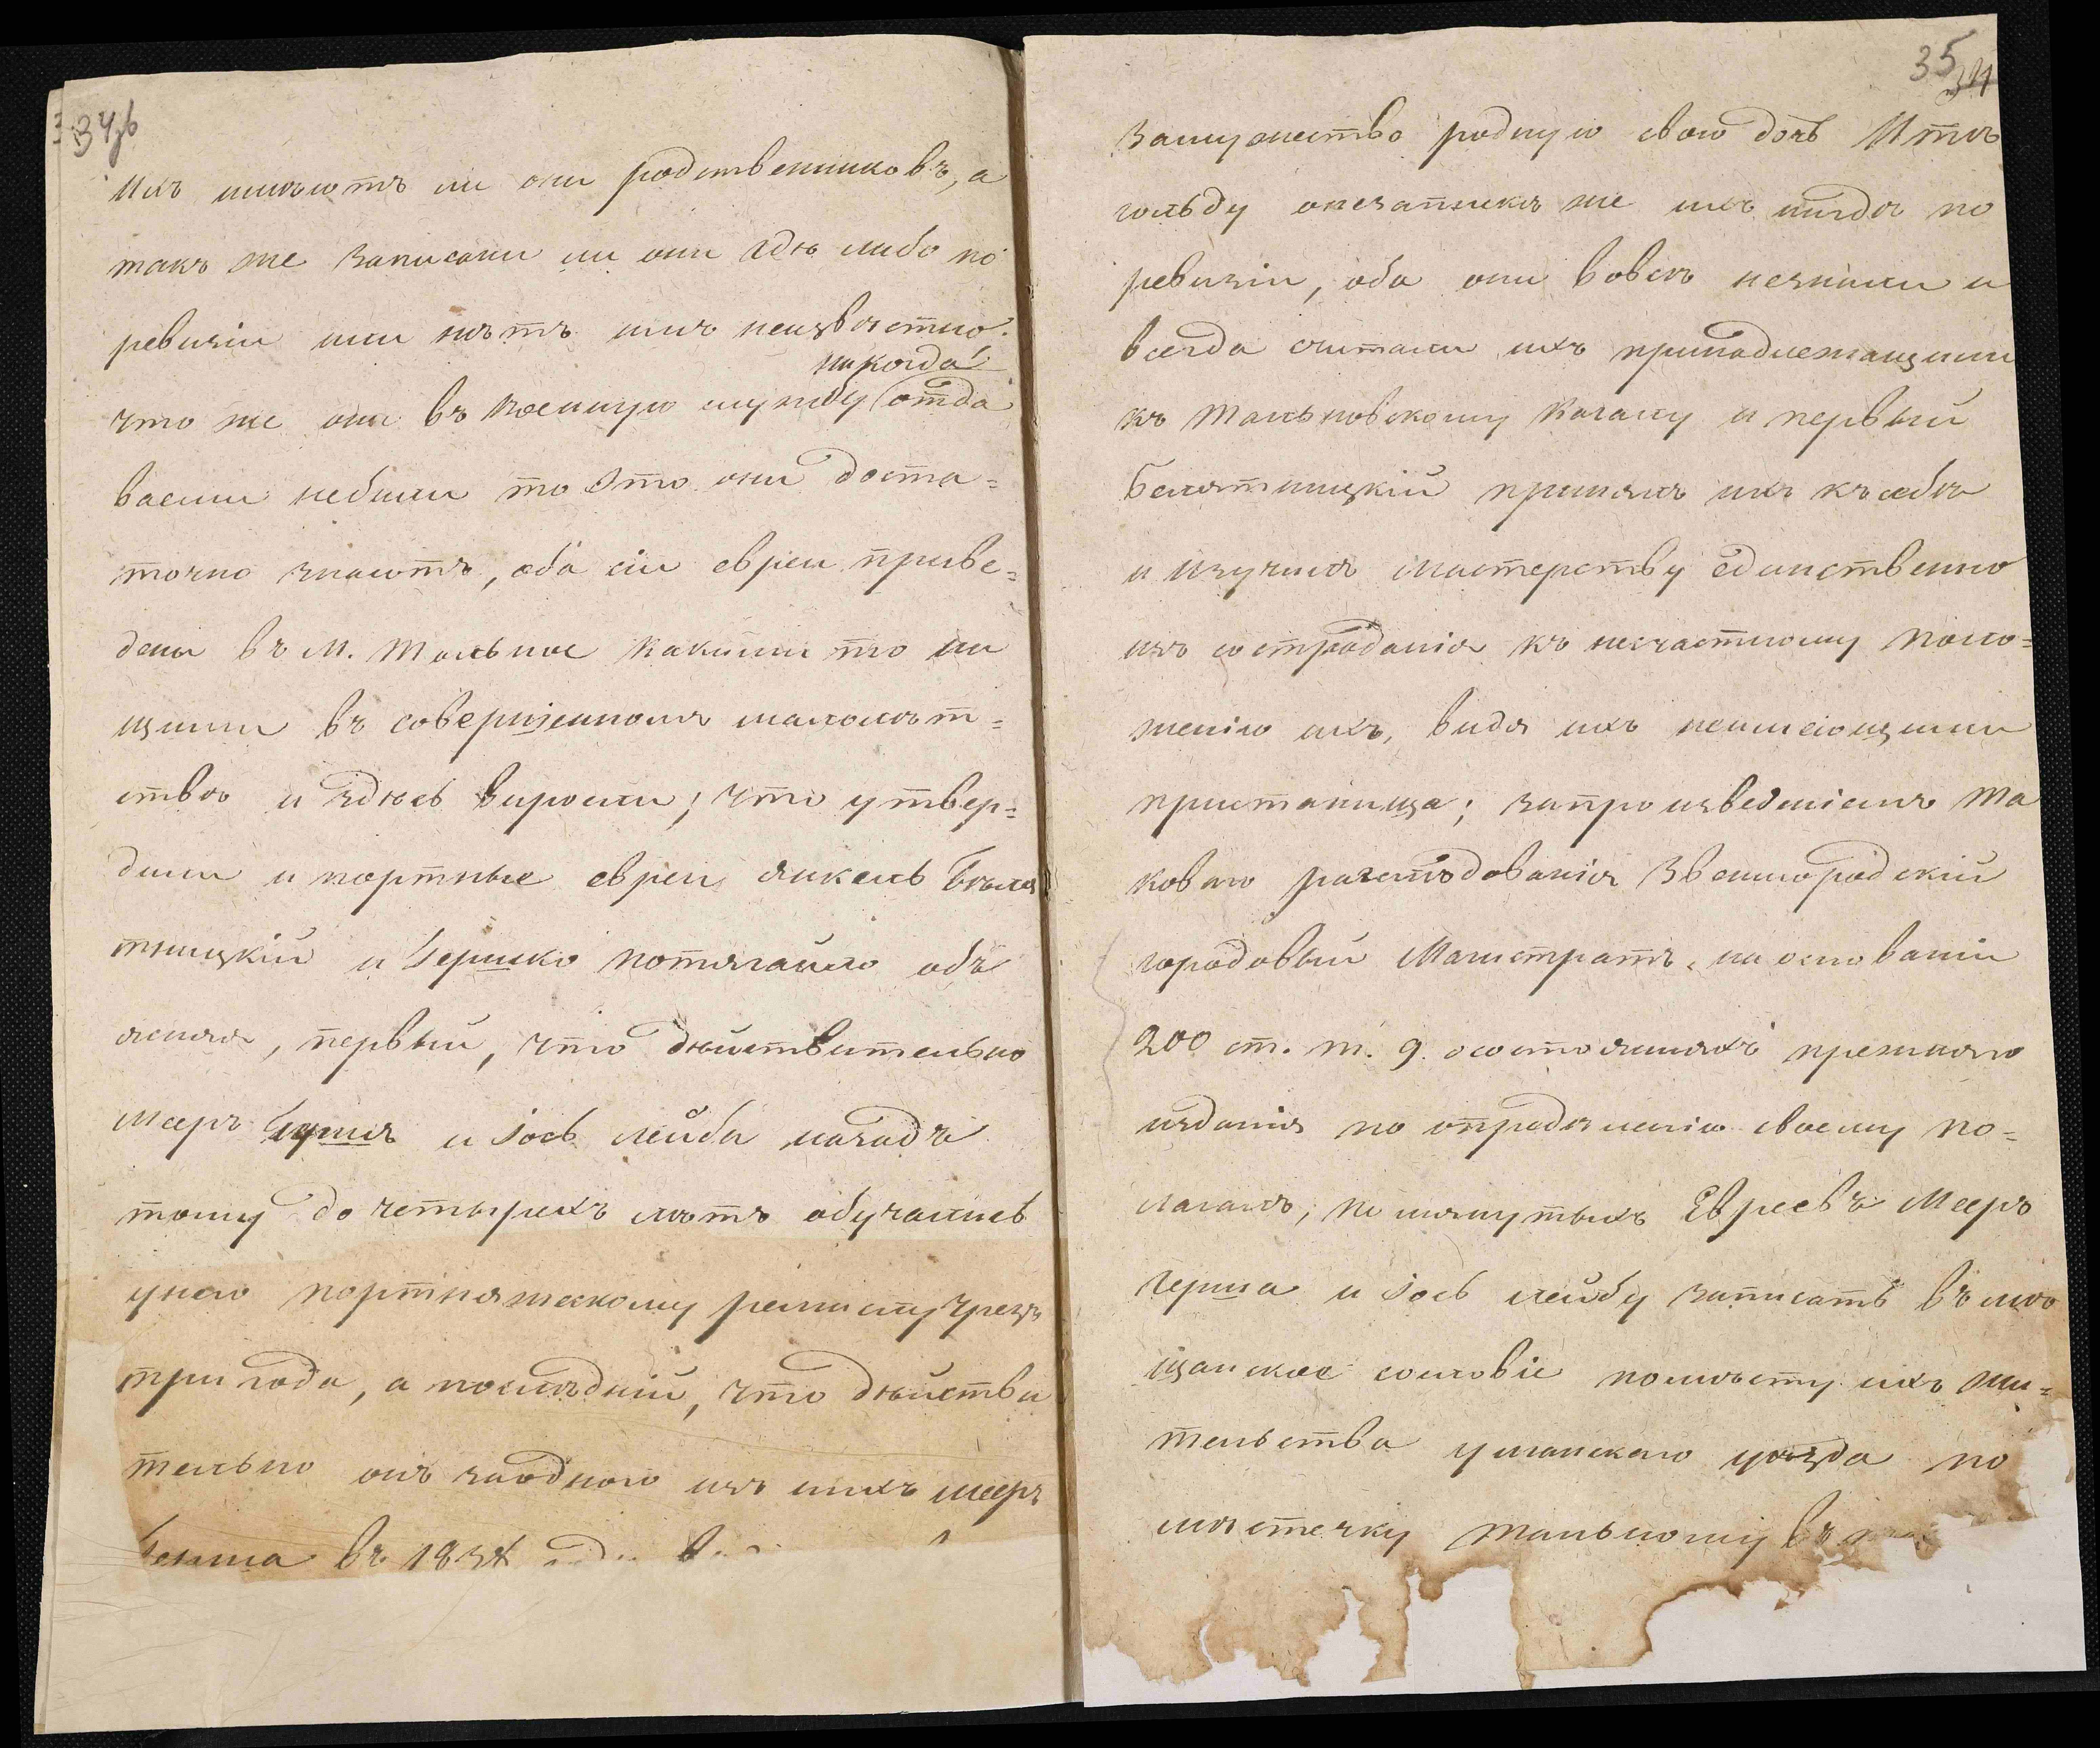 34 зв
ихъ имѣютъ ли они родственниковъ, а
такъ же записани ли они гдѣ либо по
ревизіи или нѣтъ имъ неизвѣстно.
никогда
что же они въ военную службу отда
ваеми небыли то это они доста=
точно знаютъ, оба сіи евреи приве=
дены въ м. Тальное какими то ни
щими въ совершенномъ малолѣт=
ствѣ и здѣсь выросли; что утвер=
дили и портные евреи Янкель Бѣля
тницкій и Гершко Потягайло объ
ясняя, первый, что дѣйствительно
Мееръ Гершъ и Іось Лейбы назадъ
тому до четырехъ лѣтъ обучались
унего портняжескому ремислу чрезъ
три года, а послѣдній, что дѣйстви
тельно онъ заодного изъ нихъ Меерь
Герша въ 183
35
34
замужество родную свою дочь Итъ
гольду опезаписки же ихъ нигдѣ по
ревизіи, оба они вовсѣ незнали и
всегда считали ихъ принадлежащими
къ Тальновскому Кагалу и первый
Белятницкій принялъ ихъ къ себѣ
и изучилъ мастерству единственно
изъ состраданія къ несчастному поло=
женію ихъ, видя ихъ неимеющими
пристанища; запроизведеніемъ та
коваго разслѣдованія Звенигородскій
городовый Магистратъ, на основаніи
200 ст. т. 9. осостояніяхъ прежняго
изданія по опредѣленію своему по=
лагалъ; помянутыхъ Евреевъ Меерь
Герша и Іось Лейбу записать въ мѣ
щанское сословіе помѣсту ихъ жи=
тельства уманскаго уѣзда по
мѣстечку Тальному въ